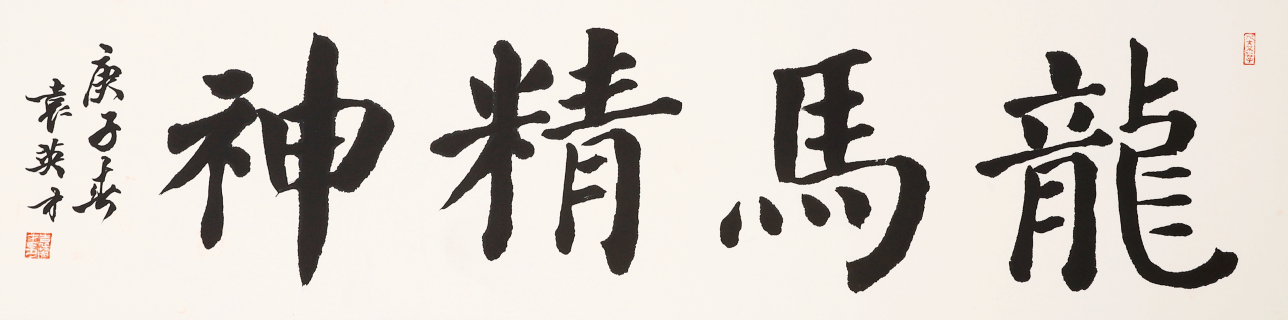 龍馬精神
庚子春
袁英才